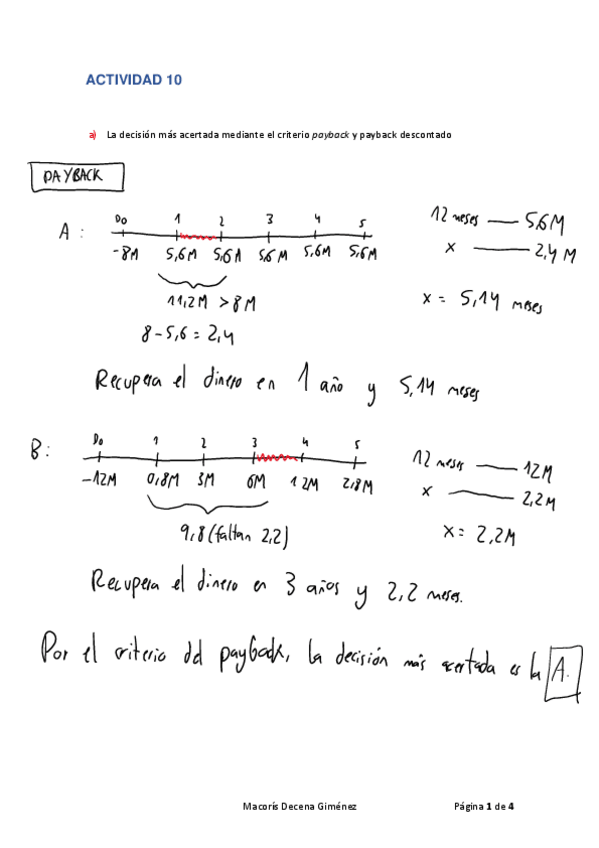 ACTIVIDAD 10
a) La decisión más acertada mediante el criterio payback y payback descontado
PAYBACK
A: Do 1 2 3 4 5
-8M 5,6M 5,6M 5,6M 5,6M 5,6M
11,2M > 8M
8-5,6 = 2,4
12 meses — 5,6M
x — 2,4M
x = 5,14 meses
Recupera el dinero en 1 año y 5,14 meses
B: Do 1 2 3 4 5
-12M 0,8M 3M 6M 12M 2,8M
9,8 (faltan 2,2)
12 meses — 12M
x — 2,2M
x = 2,2M
Recupera el dinero en 3 años y 2,2 meses.
Por el criterio del payback, la decisión más acertada es la A.
Macorís Decena Giménez Página 1 de 4